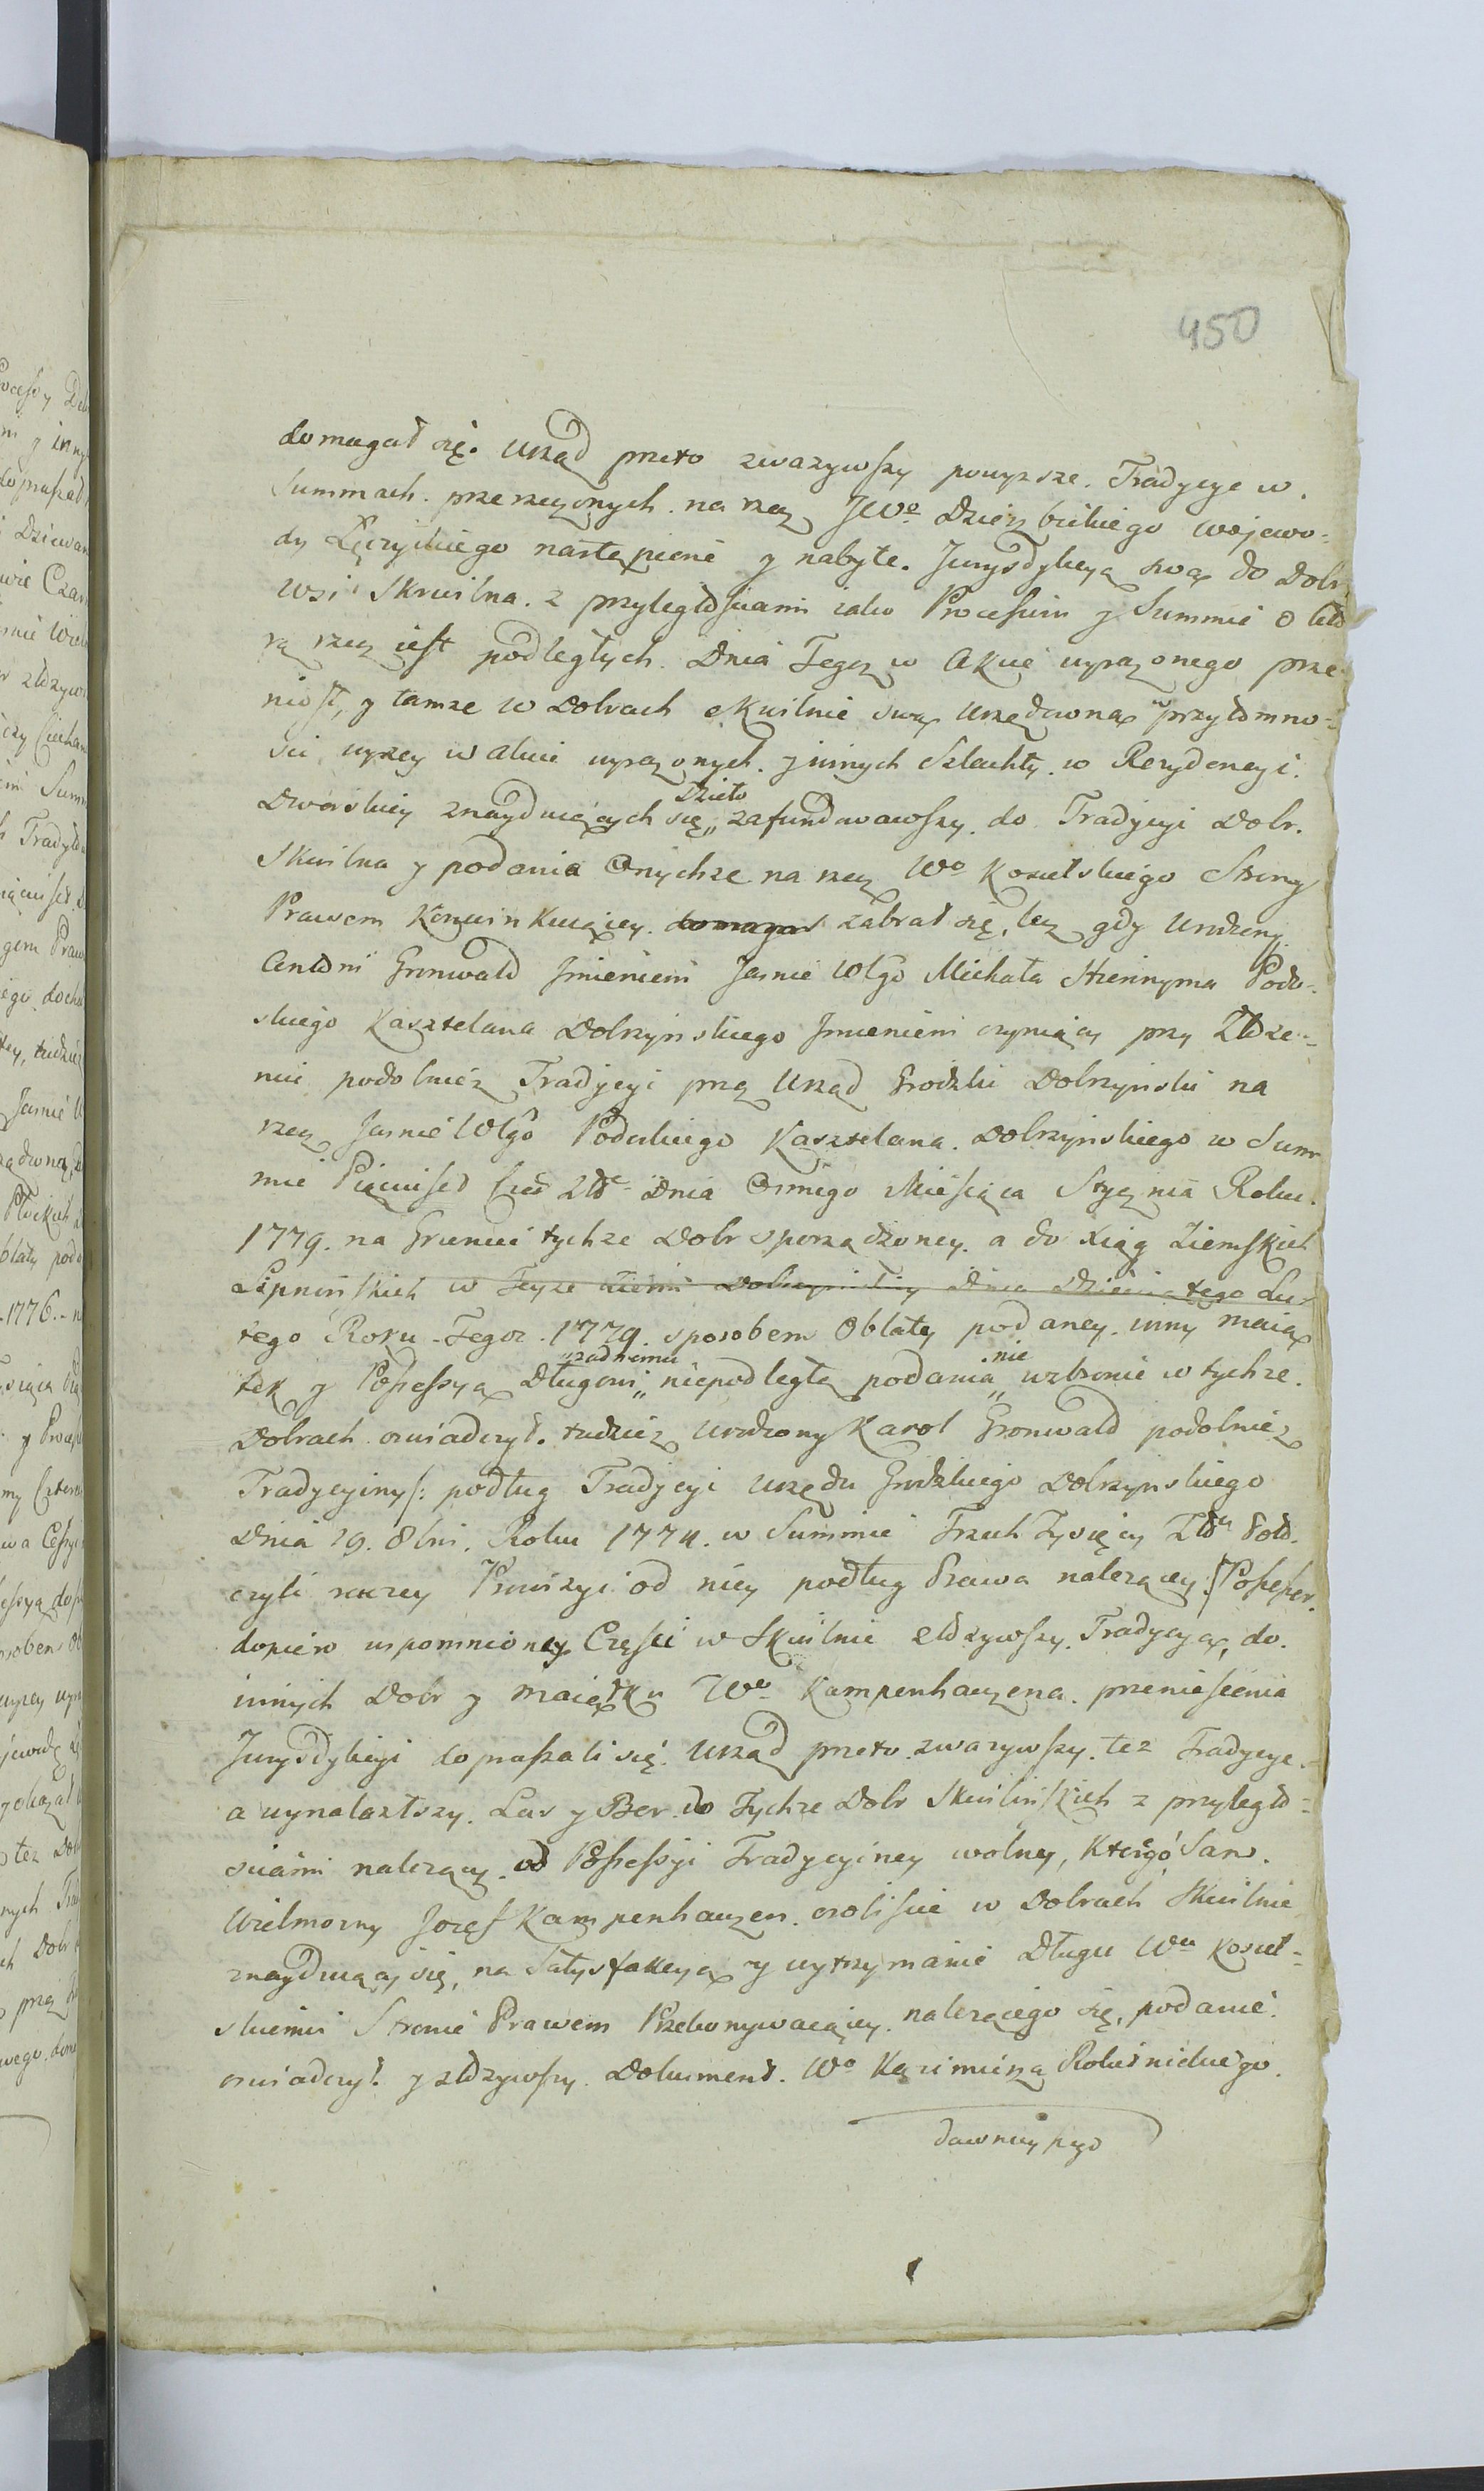 450
domagał się. Urząd przeto zwazywszy powyzsze. Tradycye w.
Summach. przerzeczonych. na rzecz JWo Dzierzbickiego wojewo-
dy Łęczyckiego nastąpione y nabyte. Jurysdykcyą swą do Dobr
wsi Skrwilna. z przyległościami iako Processem y Summie o któ
rą rzecz iest podległych. Dnia Tegoż w Akcie wyrazonego prze-
niosł, y tamze w Dobrach Skwilnie swą Urzędową w przytomno-
sci wyzey w akcie wyrazonych. y innych Szlachty. w Rezydencyi.
Dworskiey znayduiących się,, Dzieło zafundowawszy. do Tradycyi Dobr.
Skwilna y podania Onychze na rzecz Wo Kosielskiego Strony
Prawem Konwinkuiącey. domagał zabrał się, lecz gdy Urodzony
Antoni Gronwald Jmieniem Jasnie Wlgo Michała Hieronyma Podo-
skiego Kasztelana Dobrzynskiego Jmieniem czyniący przy Złoze-
niu podobniez Tradycyi przez Urząd Grodzki Dobrzynski na
rzecz Jasnie Wlgo Podoskiego Kasztelana. Dobrzynskiego w Sum
mie Pięciuset Złł Dnia Osmego Miesiąca Stycznia Roku.
1779. na Gruncie tychze Dobr sporządzoney. a do Xiąg Ziemskich
Lipnińskich w Teyze Ziemi Dobrzynskiey Dnia Dziewiątego Lu-
tego Roku Tegoz. 1779. sposobem Oblaty podaney. inny maią
tek y Possessyą Długowi,, zadnemu niepodległą podania,, nie wzbronie w tychze.
Dobrach oswiadczył. tudziez Urodzony Karol Gronwald podobniez
Tradycyiny /: podług Tradycyi Urzędu Grodzkiego Dobrzynskiego
Dnia 19. 8bris. Roku 1774. w Summie Trzech Tysięcy Złł
czyli raczey Prowizyi od niey podług Prawa nalezącey :/ Possessor.
dopiero wspomnioney Części w Skwilnie złozywszy. Tradycyą, do.
innych Dobr y maiątku Wo Kampenhauzena. przeniesienia
Jurysdykcyi dopraszali się. Urząd przeto. zwazywszy. tez Tradycye.
a wynalazłszy. Las y Bor. do Tychze Dobr Skwilinskich z przyległo-
sciami nalezący. od Possessyi Tradycyiney wolny, Którego Sam.
Wielmozny Jozef Kampenhauzen. osobiscie w Dobrach Skwilnie
znayduiący się, na Satysfakcyą y wytrzymanie Długu Wu Kosiel-
skiemu Stronie Prawem Przekonywaiącey. nalezącego się, podanie.
oswiadczył. y złozywszy. Dokument. Wo Kazimierza Rokitnickiego.
dawniey przez